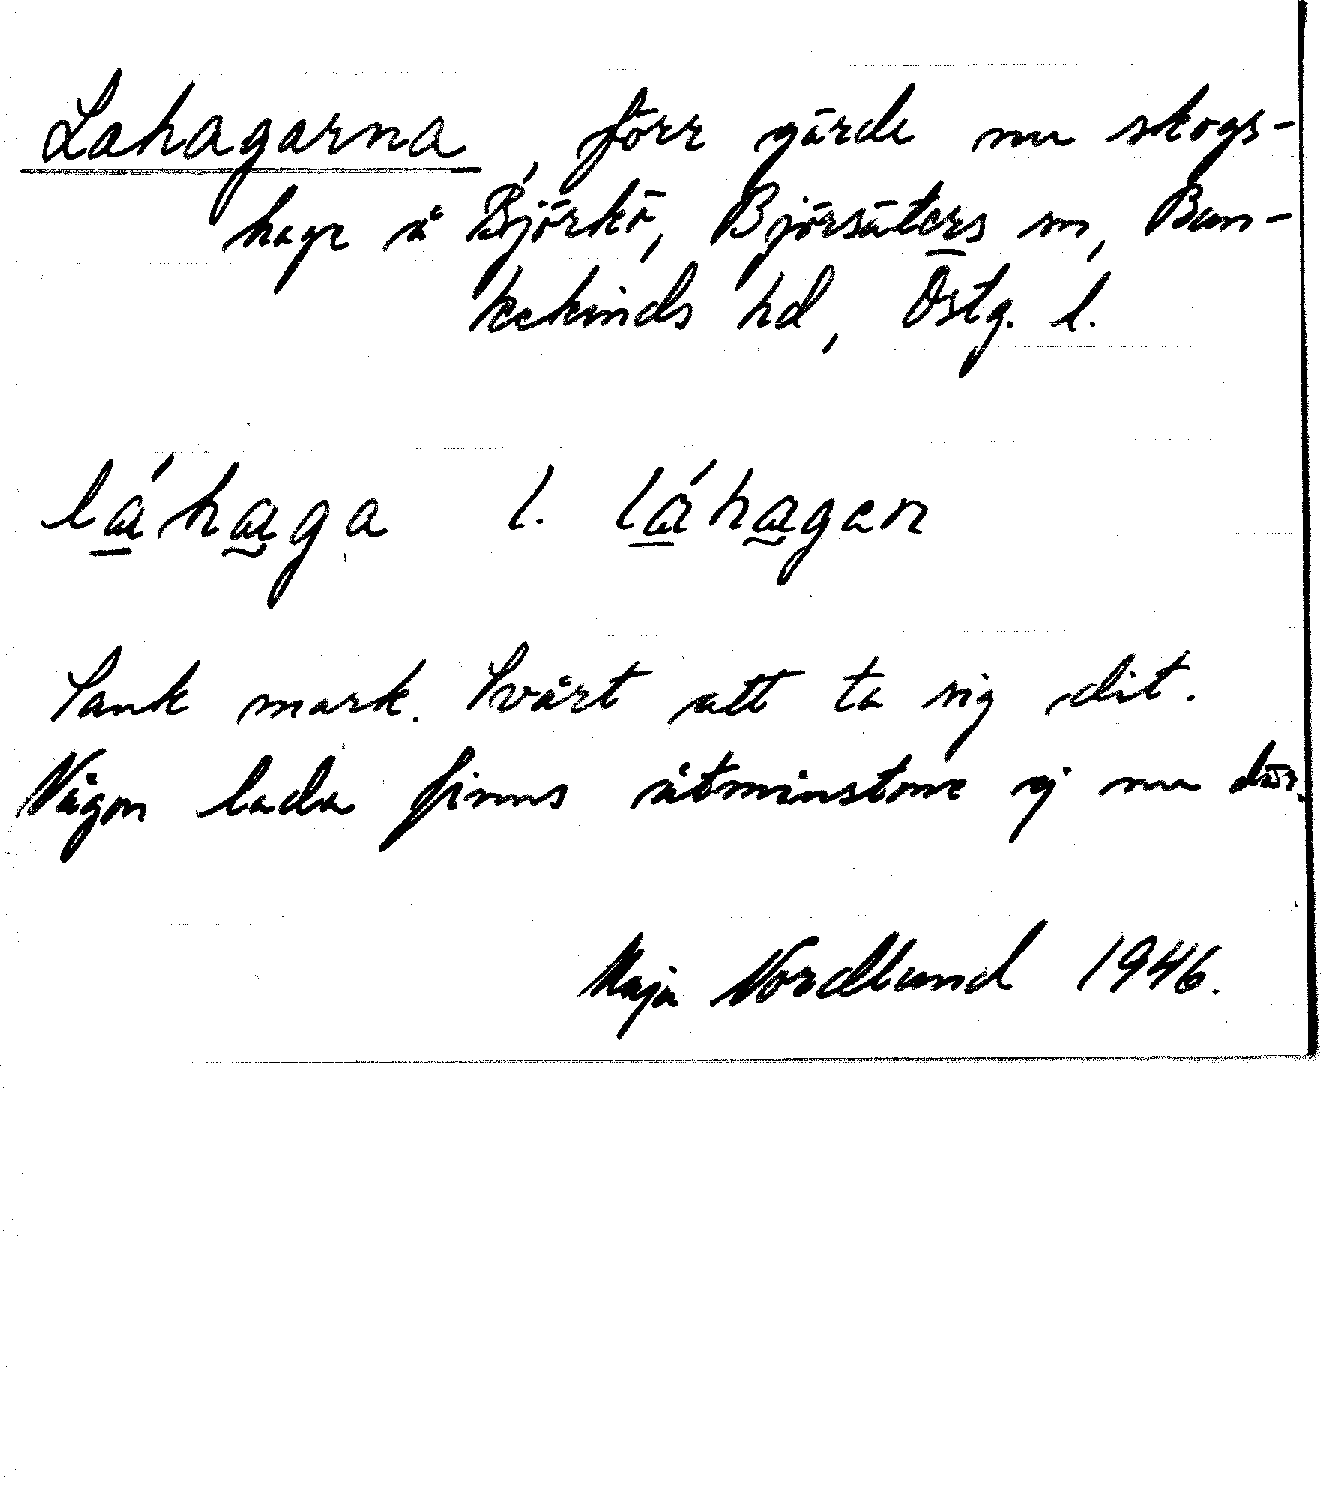 Lahagarna, förr gärde nu skogs-
hage å Björkö, Björsäters sn, Ban-
kekinds hd, Östg. l.
láhaga l. láhagen
Sank mark. Svårt att ta sig dit.
Någon lada finns åtminstone ej nu där.
Maja Nordlund 1946.